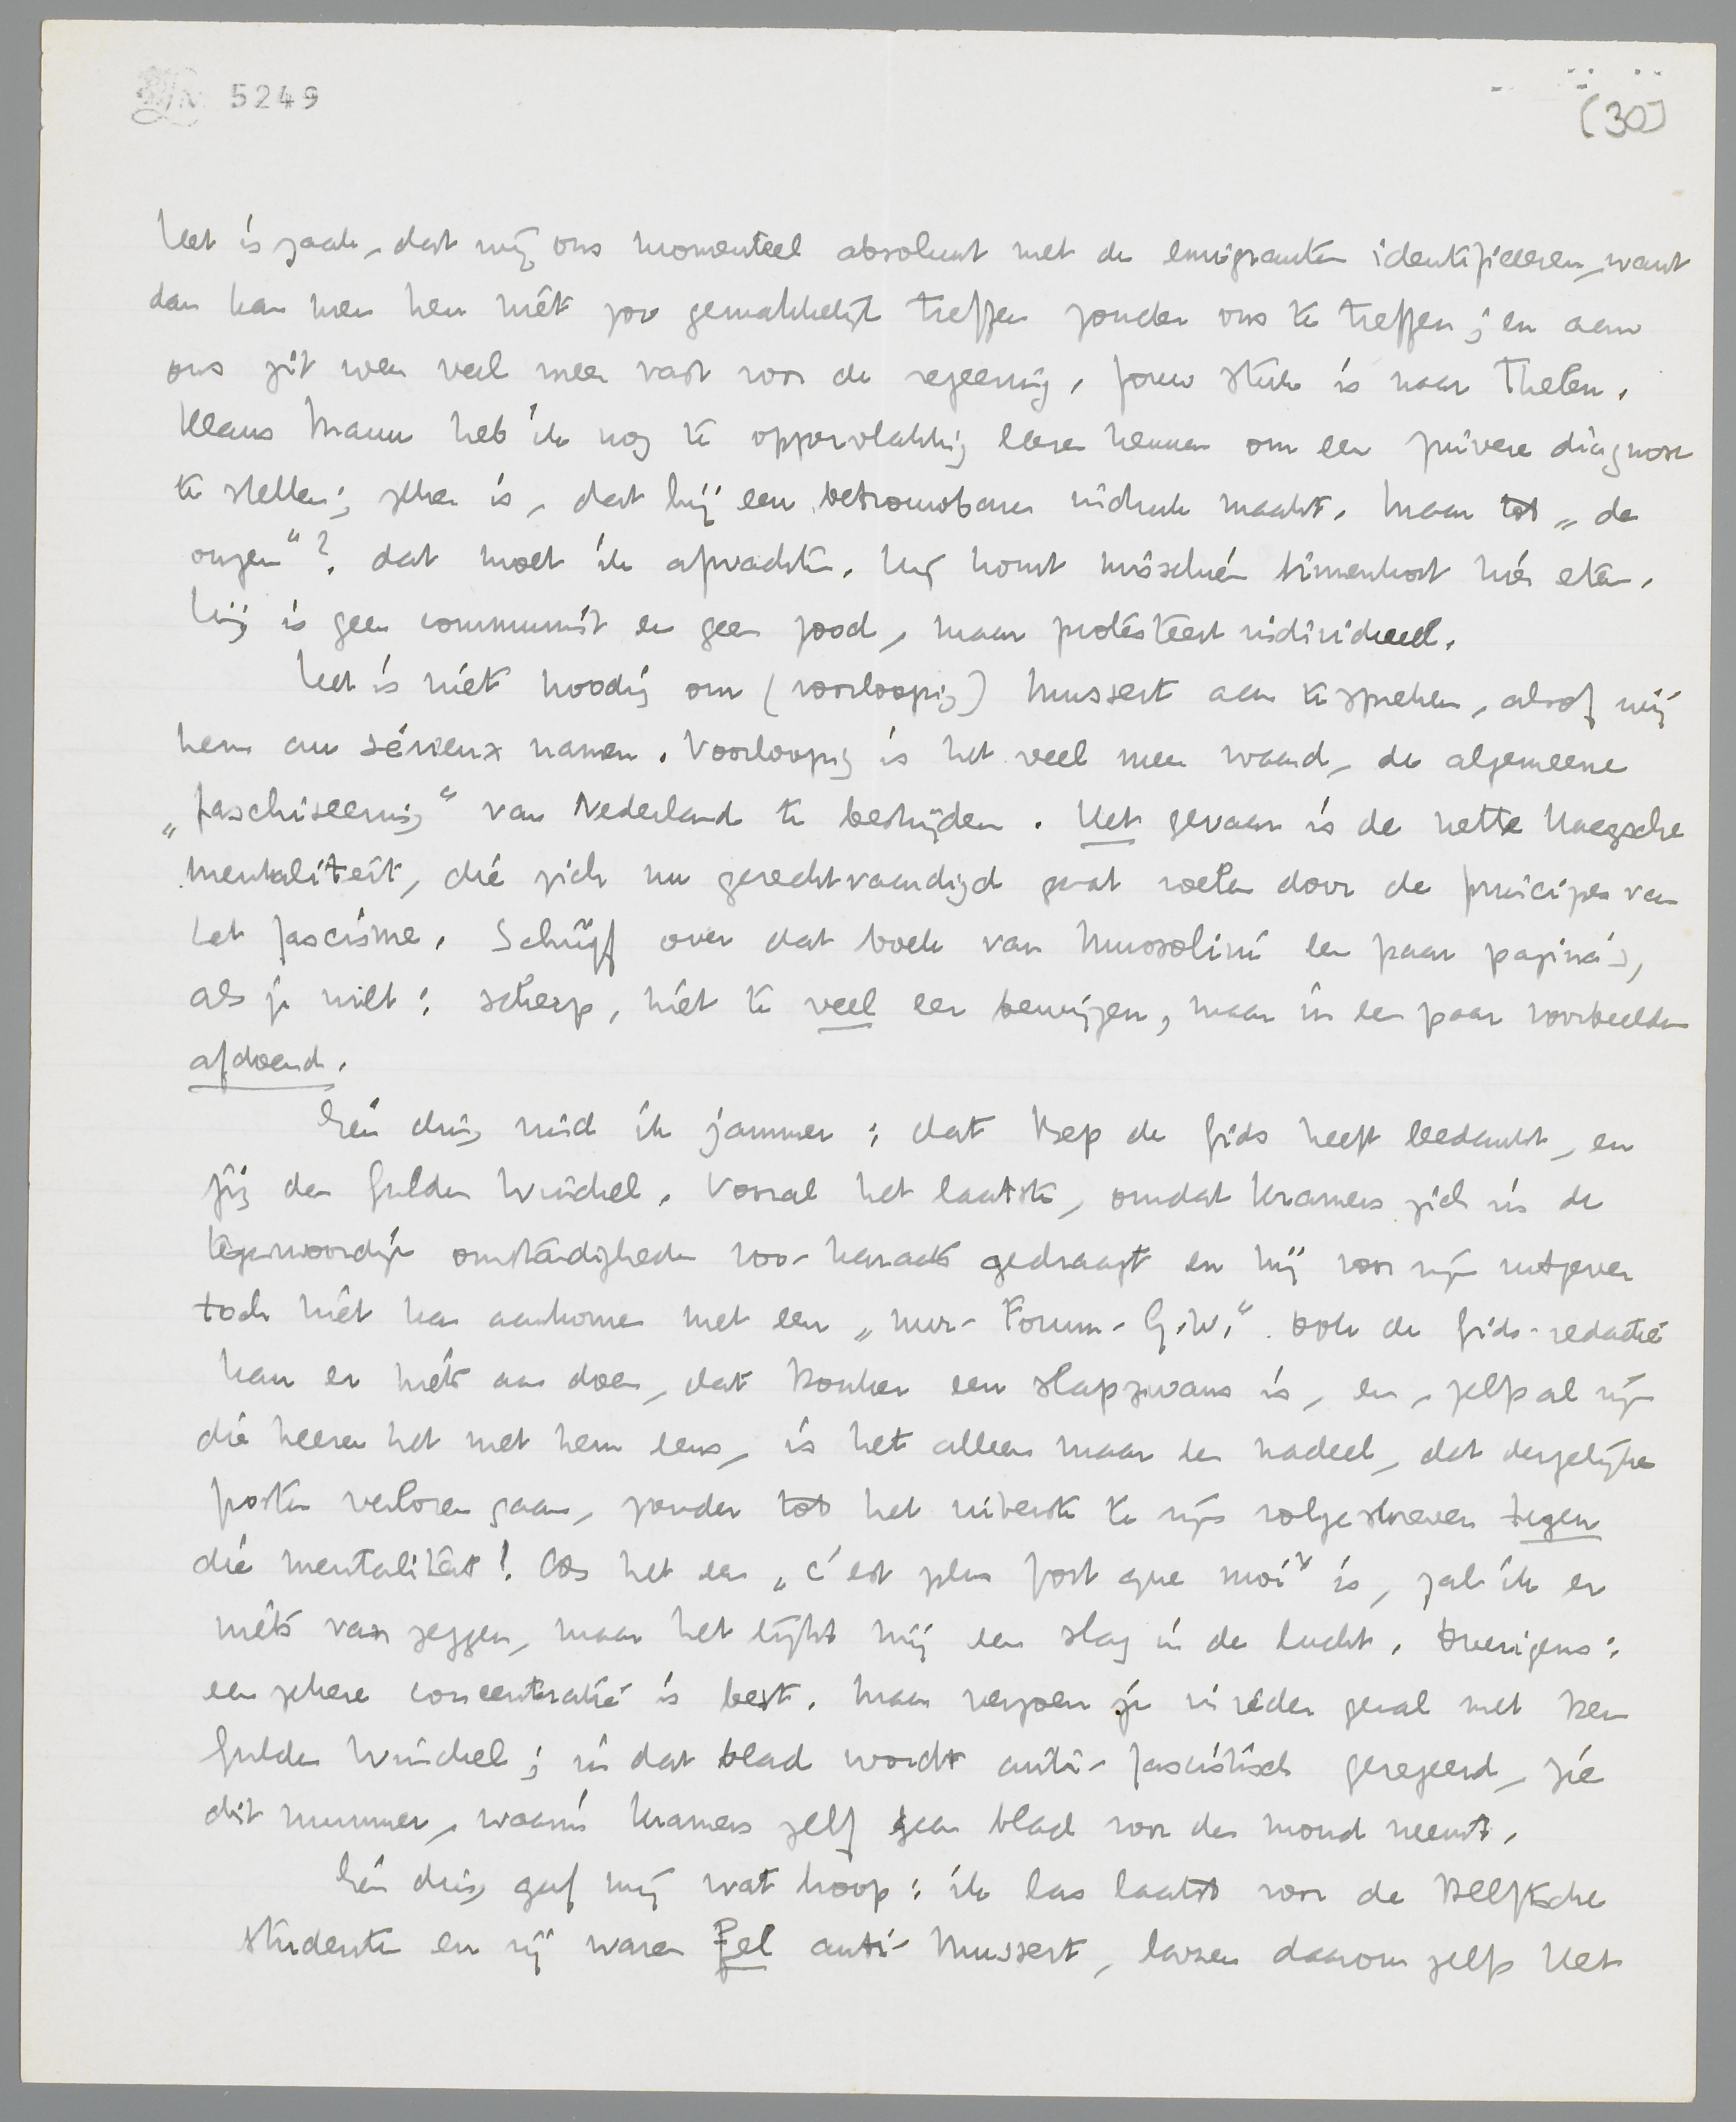 5249
(30)
Het is zaak, dat wij ons momenteel absoluut met de emigranten identificeeren, want
dan kan men hen niet zoo gemakkelijk treffen zonder ons te treffen; en aan
ons zit men veel meer vast voor de regeering. Jouw stuk is naar Thelen.
Klaus Mann heb ik nog te oppervlakkig leeren kennen om een zuivere diagnose
te stellen; zeker is, dat hij een betrouwbaren indruk maakt. Maar tot „de
onzen"? dat moet ik afwachten. Hij komt misschien binnenkort hier eten.
Hij is geen communist en geen jood, maar protesteert individueel.
Het is niet noodig om (voorloopig) Mussert aan te spreken, alsof wij
hem au sérieux namen. Voorloopig is het veel meer waard, de algemeene
„faschiseering" van Nederland te bestrijden. Het gevaar is de nette Haagsche
mentaliteit, die zich nu gerechtvaardigd gaat voelen door de principes van
het fascisme. Schrijf over dat boek van Mussolini een paar pagina's,
als je wilt: scherp, niet te veel een bewijzen, maar in een paar voorbeelden
afdoend.
Eén ding vind ik jammer: dat Bep de Gids heeft bedankt, en
jij den Gulden Winckel. Vooral het laatste, omdat Kramers zich in de
tegenwoordige omstandigheden zoo kranig gedraagt en hij voor zijn uitgever
toch niet kan aankomen met een „nur-Forum-G.W.". Ook de Gids-redactie
kan er niets aan doen, dat Donker een slapzwans is, en, zelfs al zijn
die heeren het met hem eens, is het alleen maar een nadeel, dat dergelijke
posten verloren gaan, zonder tot het uiterste te zijn volgeschreven tegen
die mentaliteit! Als het een „c'est plus fort que moi" is, zal ik er
niets van zeggen, maar het lijkt mij een slag in de lucht. Overigens:
een zekere concentratie is best. Maar verzoen je in ieder geval met den
Gulden Winckel; in dat blad wordt anti-fascistisch geregeerd, zie
dit nummer, waarin Kramers zelf geen blad voor den mond neemt.
Eén ding gaf mij wat hoop: ik las laatst voor de Delftsche
studenten en zij waren fel anti-Mussert, lazen daarom zelfs Het